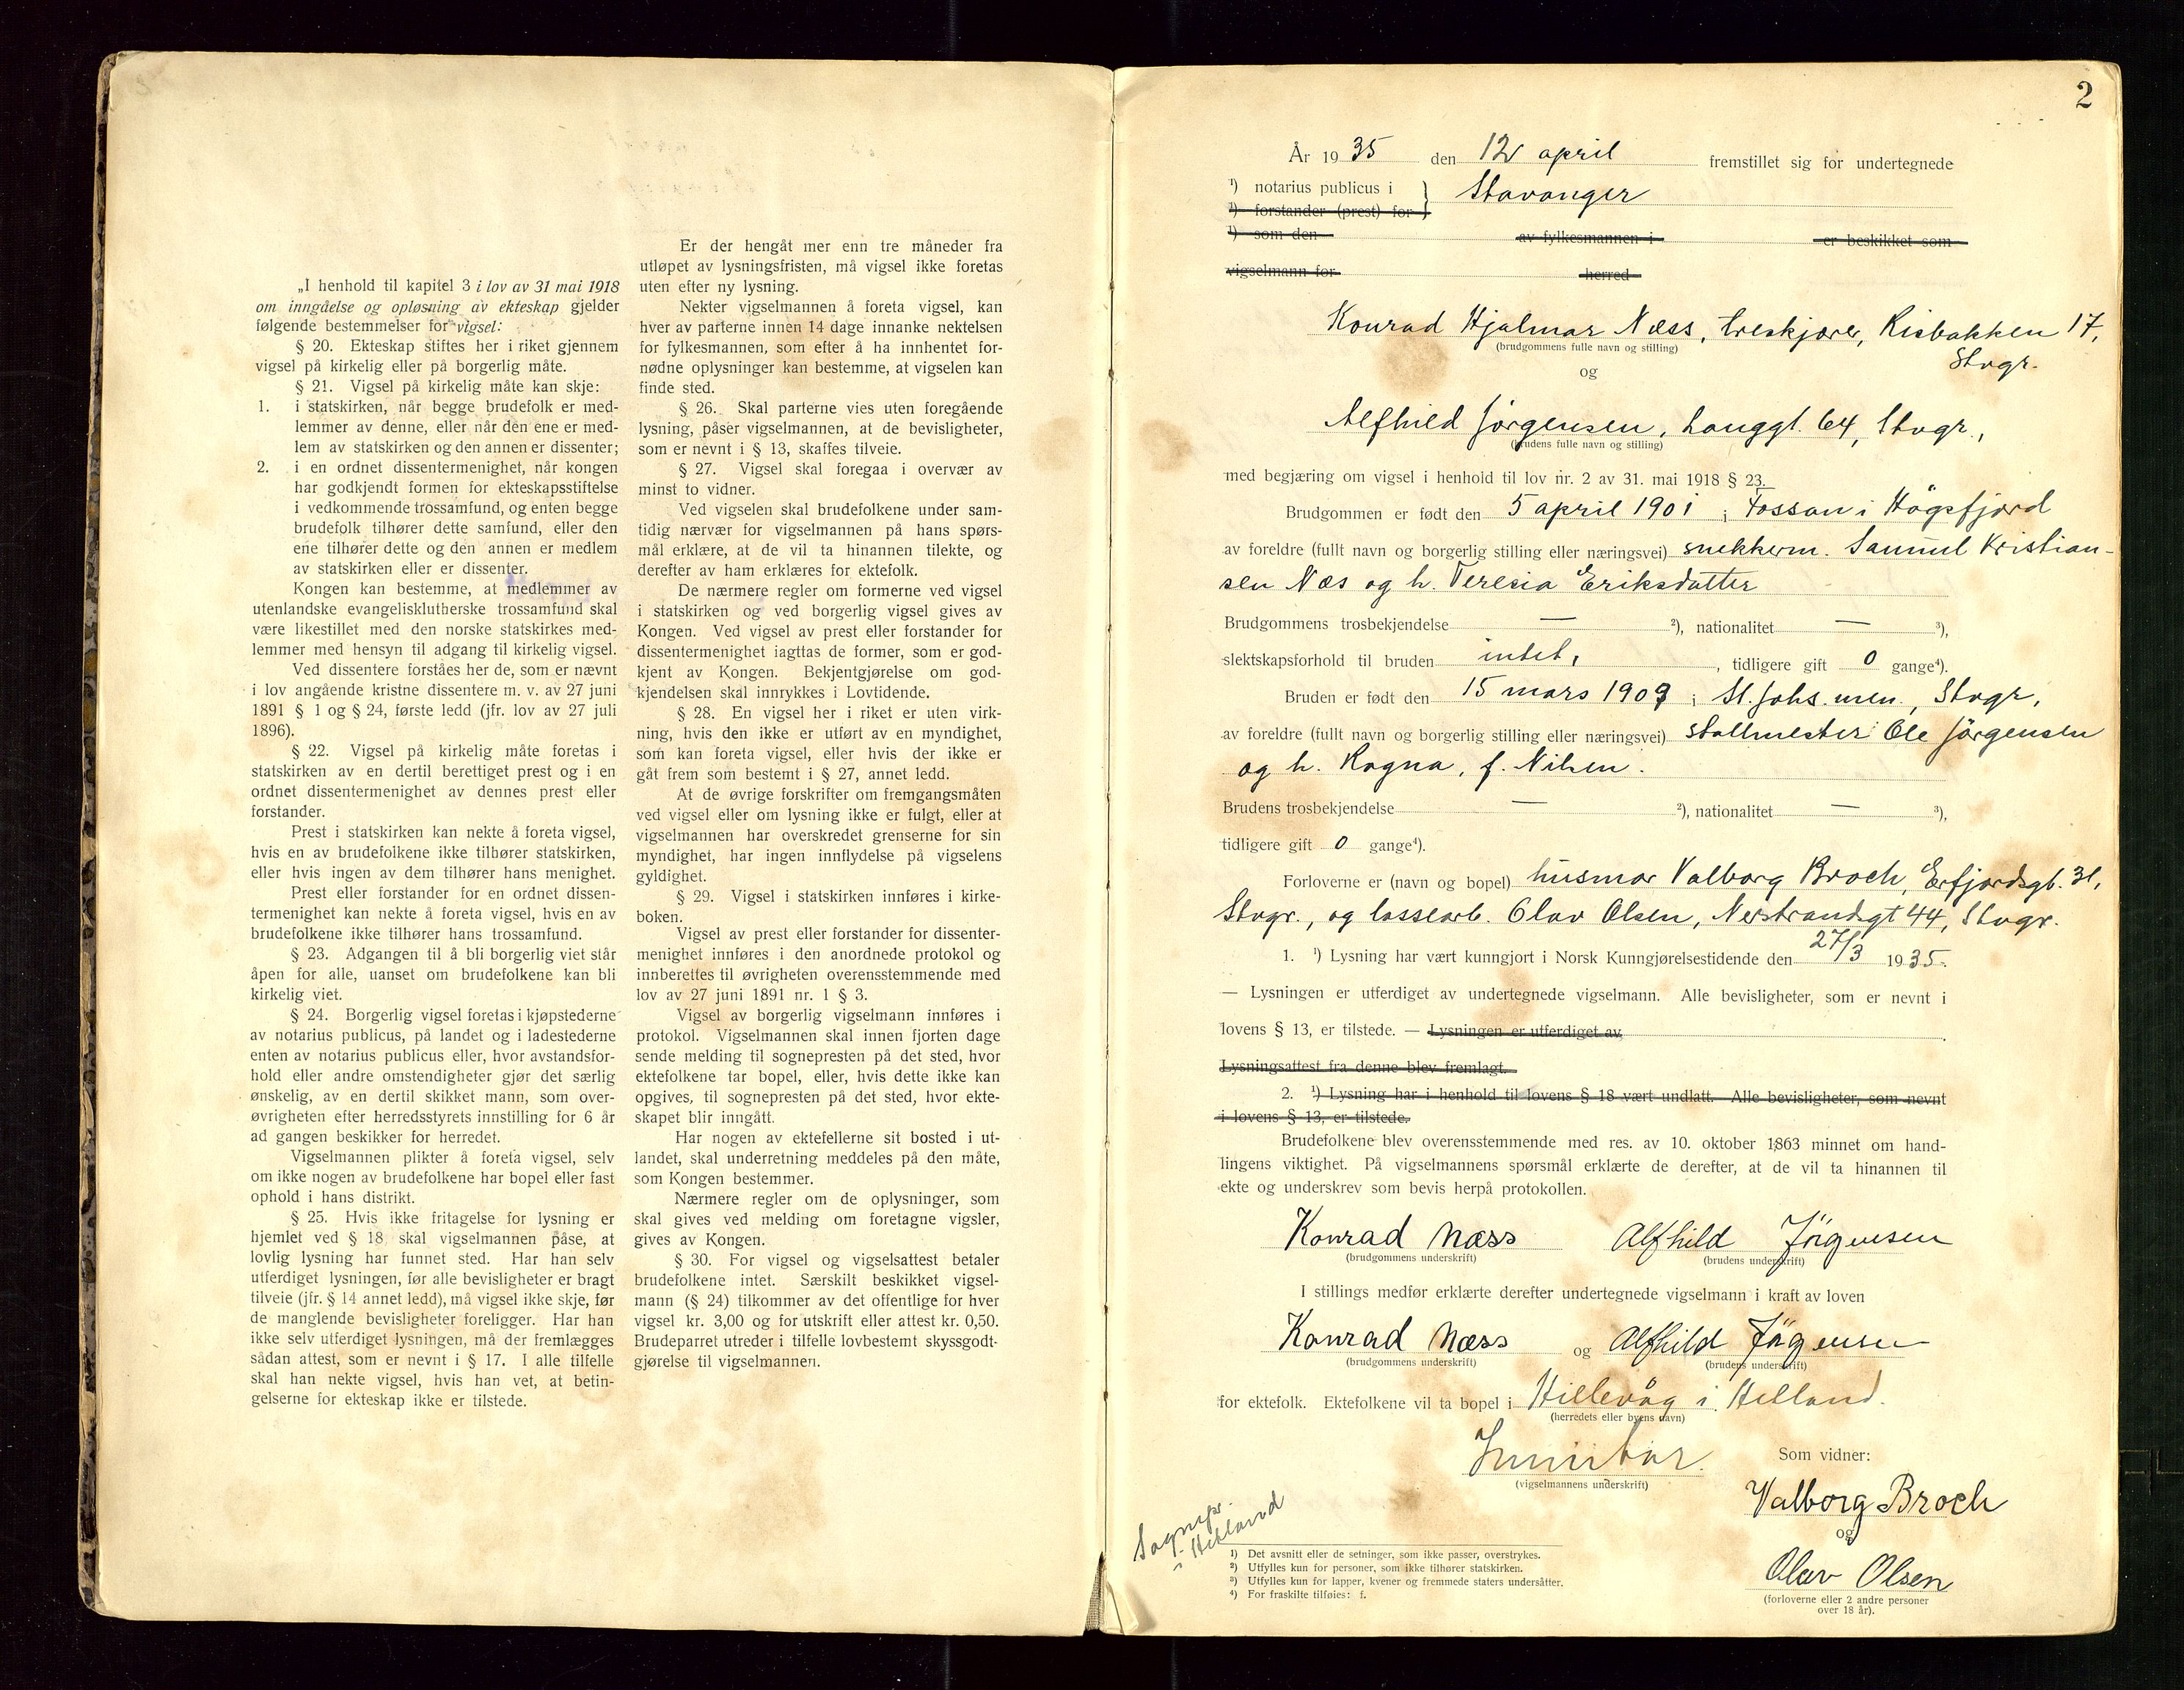 „I henhold til kapitel 3 i lov av 31 mai 1918
om inngåelse og opløsning av ekteskap gjelder
følgende bestemmelser for vigsel:
§ 20. Ekteskap stiftes her i riket gjennem
vigsel på kirkelig eller på borgerlig måte.
§ 21. Vigsel på kirkelig måte kan skje:
1. i statskirken, når begge brudefolk er med-
lemmer av denne, eller når den ene er med-
lem av statskirken og den annen er dissenter;
2. i en ordnet dissentermenighet, når kongen
har godkjendt formen for ekteskapsstiftelse
i vedkommende trossamfund, og enten begge
brudefolk tilhører dette samfund, eller den
ene tilhører dette og den annen er medlem
av statskirken eller er dissenter.
Kongen kan bestemme, at medlemmer av
utenlandske evangelisklutherske trossamfund skal
være likestillet med den norske statskirkes med-
lemmer med hensyn til adgang til kirkelig vigsel.
Ved dissentere forståes her de, som er nævnt
i lov angående kristne dissentere m. v. av 27 juni
1891 § 1 og § 24, første ledd (jfr. lov av 27 juli
1896).
§ 22. Vigsel på kirkelig måte foretas i
statskirken av en dertil berettiget prest og i en
ordnet dissentermenighet av dennes prest eller
forstander.
Prest i statskirken kan nekte å foreta vigsel,
hvis en av brudefolkene ikke tilhører statskirken,
eller hvis ingen av dem tilhører hans menighet.
Prest eller forstander for en ordnet dissen-
termenighet kan nekte å foreta vigsel, hvis en av
brudefolkene ikke tilhører hans trossamfund.
§ 23. Adgangen til å bli borgerlig viet står
åpen for alle, uanset om brudefolkene kan bli
kirkelig viet.
§ 24. Borgerlig vigsel foretas i kjøpstederne
av notarius publicus, på landet og i ladestederne
enten av notarius publicus eller, hvor avstandsfor-
hold eller andre omstendigheter gjør det særlig
ønskelig, av en dertil skikket mann, som over-
øvrigheten efter herredsstyrets innstilling for 6 år
ad gangen beskikker for herredet.
Vigselmannen plikter å foreta vigsel, selv
om ikke nogen av brudefolkene har bopel eller fast
ophold i hans distrikt.
§ 25. Hvis ikke fritagelse for lysning er
hjemlet ved § 18 skal vigselmannen påse, at
lovlig lysning har funnet sted. Har han selv
utferdiget lysningen, før alle bevisligheter er bragt
tilveie (jfr. § 14 annet ledd), må vigsel ikke skje, før
de manglende bevisligheter foreligger. Har han
ikke selv utferdiget lysningen, må der fremlægges
sådan attest, som er nevnt i § 17. I alle tilfelle
skal han nekte vigsel, hvis han vet, at betin-
gelserne for ekteskap ikke er tilstede.
Er der hengåt mer enn tre måneder fra
utløpet av lysningsfristen, må vigsel ikke foretas
uten efter ny lysning.
Nekter vigselmannen å foreta vigsel, kan
hver av parterne innen 14 dage innanke nektelsen
for fylkesmannen, som efter å ha innhentet for-
nødne oplysninger kan bestemme, at vigselen kan
finde sted.
§ 26. Skal parterne vies uten foregående
lysning, påser vigselmannen, at de bevisligheter,
som er nevnt i § 13, skaffes tilveie.
§ 27. Vigsel skal foregaa i overvær av
minst to vidner.
Ved vigselen skal brudefolkene under sam-
tidig nærvær for vigselmannen på hans spørs-
mål erklære, at de vil ta hinannen tilekte, og
derefter av ham erklæres for ektefolk.
De nærmere regler om formerne ved vigsel
i statskirken og ved borgerlig vigsel gives av
Kongen. Ved vigsel av prest eller forstander for
dissentermenighet iagttas de former, som er god-
kjent av Kongen. Bekjentgjørelse om god-
kjendelsen skal innrykkes i Lovtidende.
§ 28. En vigsel her i riket er uten virk-
ning, hvis den ikke er utført av en myndighet,
som kan foreta vigsel, eller hvis der ikke er
gåt frem som bestemt i § 27, annet ledd.
At de øvrige forskrifter om fremgangsmåten
ved vigsel eller om lysning ikke er fulgt, eller at
vigselmannen har overskredet grenserne for sin
myndighet, har ingen innflydelse på vigselens
gyldighet.
§ 29. Vigsel i statskirken innføres i kirke-
boken.
Vigsel av prest eller forstander for dissenter-
menighet innføres i den anordnede protokol og
innberettes til øvrigheten overensstemmende med
lov av 27 juni 1891 nr. 1 § 3.
Vigsel av borgerlig vigselmann innføres i
protokol. Vigselmannen skal innen fjorten dage
sende melding til sognepresten på det sted, hvor
ektefolkene tar bopel, eller, hvis dette ikke kan
opgives, til sognepresten på det sted, hvor ekte-
skapet blir inngått.
Har nogen av ektefellerne sit bosted i ut-
landet, skal underretning meddeles på den måte,
som Kongen bestemmer.
Nærmere regler om de oplysninger, som
skal gives ved melding om foretagne vigsler,
gives av Kongen.
§ 30. For vigsel og vigselsattest betaler
brudefolkene intet. Særskilt beskikket vigsel-
mann (§ 24) tilkommer av det offentlige for hver
vigsel kr. 3,00 og for utskrift eller attest kr. 0,50.
Brudeparret utreder i tilfelle lovbestemt skyssgodt-
gjørelse til vigselmannen.
2
År 1935 den 12 april fremstillet sig for undertegnede
¹) notarius publicus i } Stavanger
¹) forstander (prest) for
¹) som den av fylkesmannen i er beskikket som
vigselmann for herred
Konrad Hjalmar Næss, treskjærer, Risbakken 17,
(brudgommens fulle navn og stilling)
Stvgr.
og
Alfhild Jörgensen, Langgt. 64, Stvgr.,
(brudens fulle navn og stilling)
med begjæring om vigsel i henhold til lov nr. 2 av 31. mai 1918 § 23.
Brudgommen er født den 5 april 1901 i Fossan i Högsfjord
av foreldre (fullt navn og borgerlig stilling eller næringsvei) snekkerm. Samuel Kristian-
sen Næs og h. Teresia Eriksdatter
Brudgommens trosbekjendelse — ²), nationalitet — ³),
slektskapsforhold til bruden intet, , tidligere gift 0 gange⁴).
Bruden er født den 15 mars 1909 i St. Johs. men., Stvgr,
av foreldre (fullt navn og borgerlig stilling eller næringsvei) stallmester Ole Jörgensen
og h. Ragna, f. Nilsen.
Brudens trosbekjendelse — ²), nationalitet — ³),
tidligere gift 0 gange⁴).
Forloverne er (navn og bopel) husmor Valborg Broch, Erfjordsgt. 31,
Stvgr., og lossearb. Olav Olsen, Nerstrandsgt 44, Stvgr.
1. ¹) Lysning har vært kunngjort i Norsk Kunngjørelsestidende den 27/3 1935.
— Lysningen er utferdiget av undertegnede vigselmann. Alle bevisligheter, som er nevnt i
lovens § 13, er tilstede. — Lysningen er utferdiget av
Lysningsattest fra denne blev fremlagt.
2. ¹) Lysning har i henhold til lovens § 18 vært undlatt. Alle bevisligheter, som nevnt
i lovens § 13, er tilstede.
Brudefolkene blev overensstemmende med res. av 10. oktober 1863 minnet om hand-
lingens viktighet. På vigselmannens spørsmål erklærte de derefter, at de vil ta hinannen til
ekte og underskrev som bevis herpå protokollen.
Konrad Næss Alfhild Jörgensen
(brudgommens underskrift) (brudens underskrift)
I stillings medfør erklærte derefter undertegnede vigselmann i kraft av loven
Konrad Næss og Alfhild Jörgensen
(brudgommens underskrift) (brudens underskrift)
for ektefolk. Ektefolkene vil ta bopel i Hillevåg i Hetland.
(herredets eller byens navn)
Som vidner:
(vigselmannens underskrift)
Valborg Broch
og
Sognepr.
i Hetland
Olav Olsen
(forloverne eller 2 andre personer
over 18 år).
¹) Det avsnitt eller de setninger, som ikke passer, overstrykes.
²) Utfylles kun for personer, som ikke tilhører statskirken.
³) Utfylles kun for lapper, kvener og fremmede staters undersåtter.
⁴) For fraskilte tilføies: f.